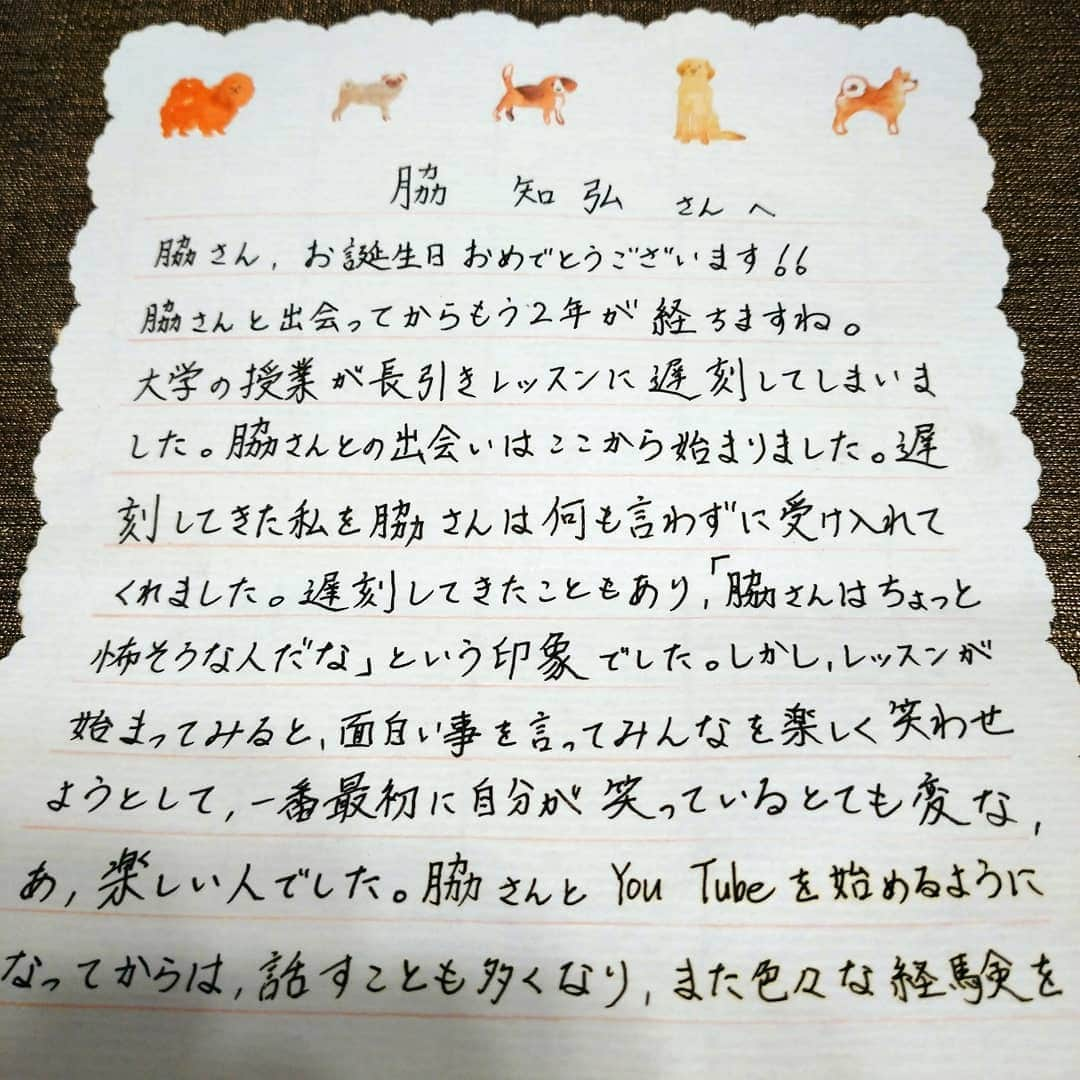 脇 知弘 さんへ
脇さん, お誕生日おめでとうございます!!
脇さんと出会ってからもう2年が経ちますね。
大学の授業が長引きレッスンに遅刻してしまいま
した。脇さんとの出会いはここから始まりました。遅
刻してきた私を脇さんは何も言わずに受け入れて
くれました。遅刻してきたこともあり,「脇さんはちょっと
怖そうな人だな」という印象でした。しかし,レッスンが
始まってみると,面白い事を言ってみんなを楽しく笑わせ
ようとして,一番最初に自分が笑っているとても変な,
あ,楽しい人でした。脇さんとYouTubeを始めるように
なってからは,話すことも多くなり,また色々な経験を